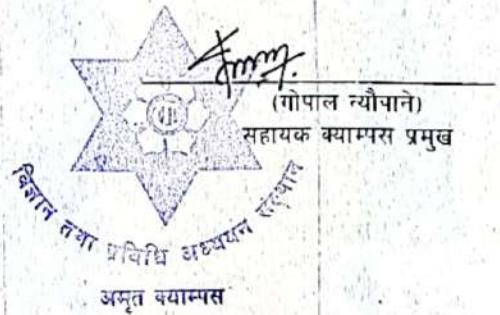 (गोपाल न्यौपाने)
सहायक क्याम्पस प्रमुख
विज्ञान तथा प्रविधि अध्ययन संस्थान
अमृत क्याम्पस